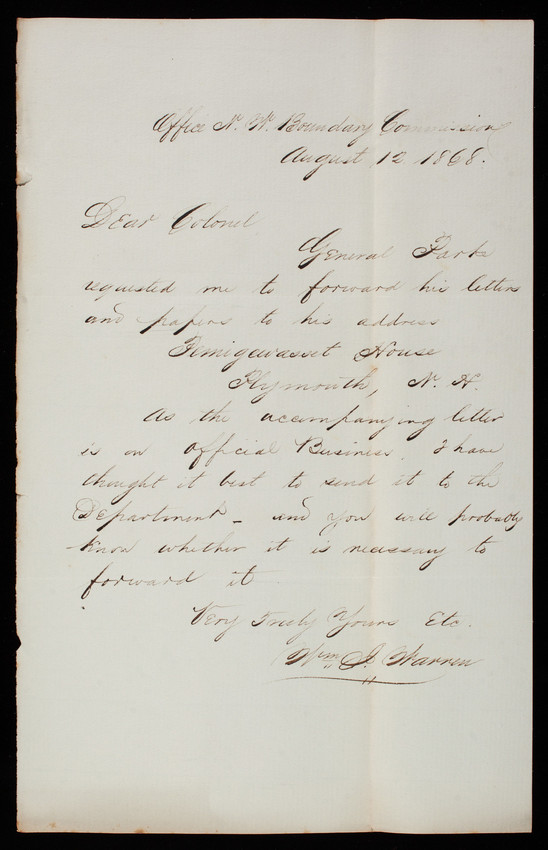 Office N. W. Boundary Commission
August 12 1868.
Dear Colonel
General Parke
requested me to forward his letters
and papers to his address
Pemigewasset House
Plymouth, N. H.
As the accompanying letter
is on official Business, I have
thought it best to send it to the
Department - and you will probably
know whether it is necessary to
forward it
Very Truly Yours Etc.
Wm J. Warren